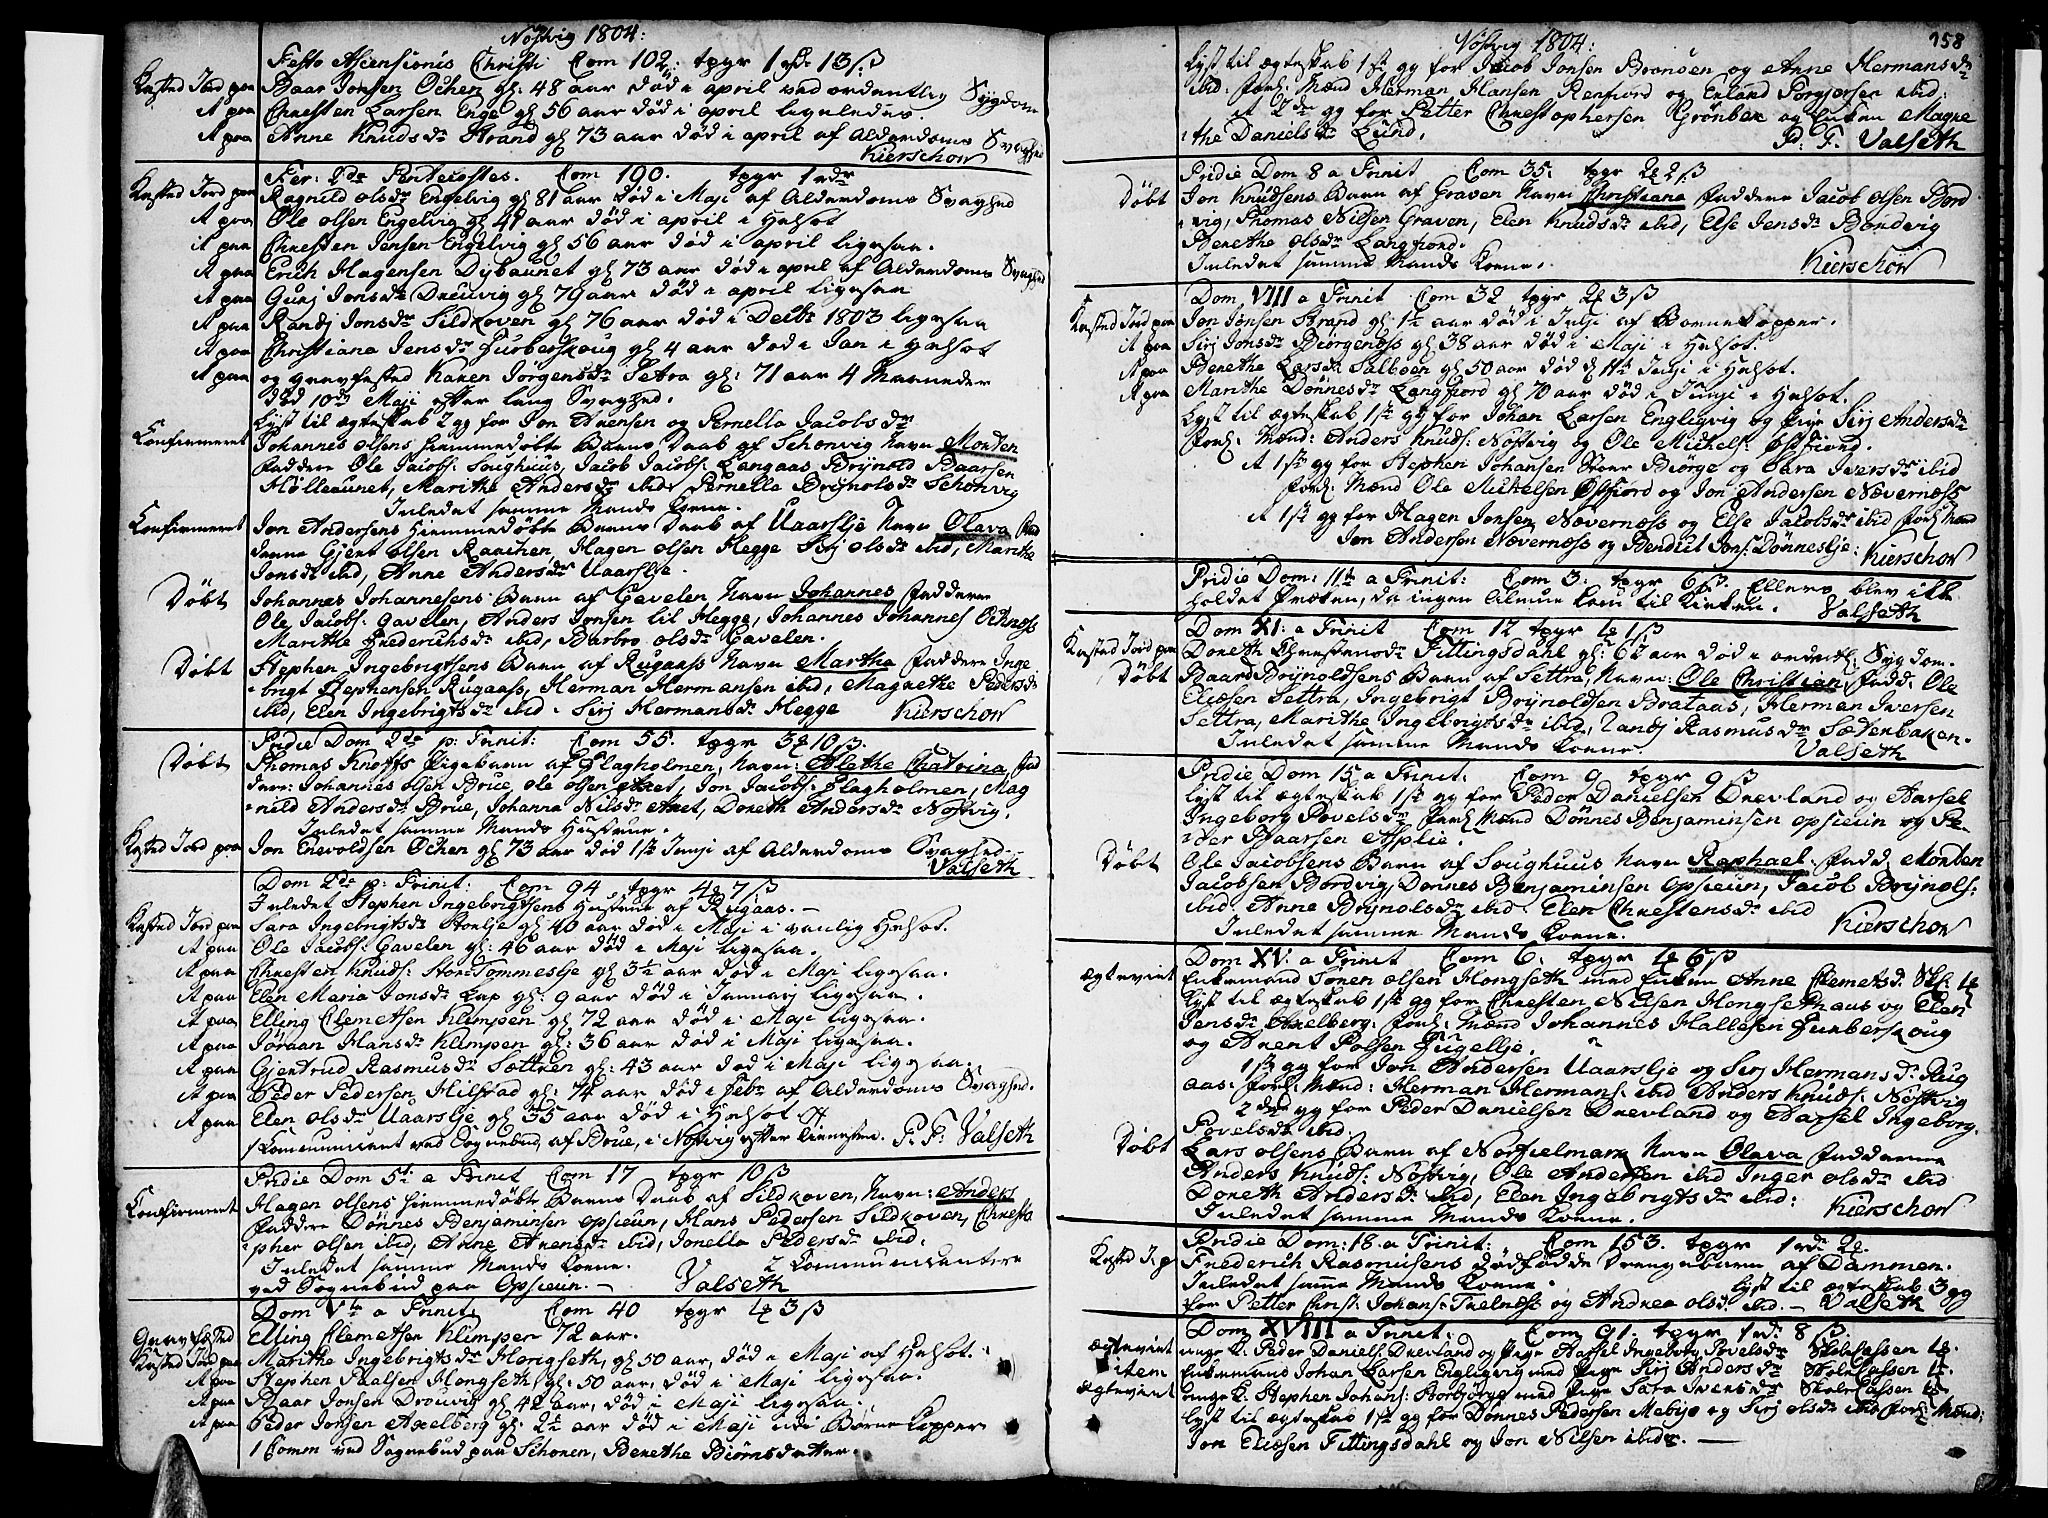 Nøstvig 1804:
Festo Ascensionis Christi Com 102, tpgr 1 rdr 13 ß
Kasted Jord paa Baar Jonsen Ochen gl: 48 aar død i april ved ordentlig Sygdom
it paa Christen Larsen Enge gl 56 aar død i april ligeledes.
it paa Anne Knudsdr Strand gl 73 aar død i april af Alderdoms Svaghed
Kierschow
Fer: 2da Pentecostes. Com 190. tpgr 1 rdr
Kasted Jord paa Ragnild olsdr Engelvig gl 81 aar død i Maji af Alderdoms Svaghed
it paa Ole olsen Engelvig gl 41 aar død i april i Helsot
it paa Christen Jensen Engelvig gl 56 aar død i april ligesaa.
it paa Erich Hagensen Dybaunet gl 73 aar død i april af Alderdoms Svaghed
it paa Gurj Jonsdr Dreuvig gl 79 aar død i april ligesaa
it paa Randj Jonsdr Sildkoven gl 76 aar død i Decbr 1803 ligesaa
it paa Christiana Jensdr Furberskoug gl 4 aar død i Jan i Helsot
it paa og gravfested Karen Jörgensdr Setra gl: 71 aar 4 Maaneder
død 10de Maji efter lang Svaghed.
Lyst til ægteskab 2 gg for Jon Arensen og Pernella Jacobsdr
Confirmeret Johannes olsens hiemmedøbte Barns Daab af Schonvig Navn Morten
Faddere Ole Jacobs: Soughuus, Jacob Jacobs: Langaas Brynild Baarsen
Mølleaunet, Marithe Andersdr ibid, Pernella Brynolsdr Schonvig
Inledet samme Mands Kone.
Confirmeret Jon Andersens Hiemmedøbte Barns Daab af Uaarslje Navn Olava Fad
derne Gjert olsen Raaihen, Hagen olsen Hegge Sirj olsdr ibid, Marithe
Jonsdr ibid, Anne Andersdr Uaarslje.
Døbt Johannes Johannesens Barn af Gavelen Navn Johannes Faddere
Ole Jacobs: Gavelen, Anders Jonsen lil Hegge, Johannes Johannes Ochnoss
Marithe Frederichsdr ibid, Barbro olsdr Gavelen.
Døbt Stephen Ingebrigtsens Barn af Rugaass Navn Marthe Faddere Inge
brigt Stephensen Rugaass, Herman Hermansen ibid, Magrethe Pedersdr
ibid, Elen Ingebrigtsdr ibid. Sirj Hermansdr Hegge Kierschow
Pridie Dom 2da p: Trinit: Com 55. tpgr 3 ¤ 10 ß.
Døbt Thomas Knoffs Pigebarn af Flagholmen, Navn: Alethe Chatrina, Fad
dere: Johannes olsen Brue, Ole olsen Aaet, Jon Jacobs: Flagholmen, Mag
nild Andersdr Brue, Johanna Nilsdr Aaet, Doreth Andersdr Nøstvig.
Inledet samme Mands Hustrue.
Kasted Jord paa Jon Enevoldsen Ochen gl 73 aar død 1ste Junji af Alderdoms Svaghed
Valseth
Dom 2da p: Trinit: Com 94 tpgr 4 ¤ 7 ß
Inledet Stephen Ingebrigtsens Hustrue af Rugaas.
Kasted Jord paa Sara Ingebrigtsdr Stoelje gl 40 aar død i Maji i vanlig Helsot.
it paa Ole Jacobs: Gavelen gl: 46 aar død i Maji ligesaa.
it paa Christen Knuds: StoreTommeslje gl 3½ aar død i Maji ligesaa.
it paa Elen Maria Jonsdr Lap gl: 9 aar død i Januarj ligesaa.
it paa Elling Clemetsen Klimpen gl 72 aar død i Maji ligesaa.
it paa Jøraan Hansdr Klimpen gl: 36 aar død i Maji ligesaa.
it paa Gjertrud Rasmusdr Sættren gl: 43 aar død i Maji ligesaa.
it paa Peder Pedersen Hilstad gl: 74 aar død i Febr af Alderdoms Svaghed.
it paa Elen olsdr Uaarslje gl 35 aar død i Helsot
1 Kommunicant ved Sognebud af Brue, i Nøstvig efter Tienesten. P. F: Valseth
Pridie Dom 5t a Trinit Com 17 tpgr 10 ß
Confirmeret Hagen olsens hiemmedøbte Barns Daab af Sildkoven, Navn: Anders
Faddere Dønnes Benjaminsen opsieün, Hans Pedersen Sildkoven, Christo
pher olsen ibid, Anne Arensdr ibid, Jonella Pedersdr ibid.
Inledet samme Mands Kone. 2 Communicantere
ved Sognebud paa Opsieün. Valseth
Dom Vte a Trinit, Com 40 tpgr 1 ¤ 3 ß
Gravfæsted Elling Clemetsen Klimpen 72 aar.
Kasted Jord paa Marithe Ingebrigtsdr Horigseth, gl 50 aar, død i Maji af Helsot.
it paa Stephen Paalsen Hongseth gl: 50 aar, død i Maji ligesaa.
it paa Baar Jonsen Drouvig gl 42 aar, død i Maji ligesaa.
it paa Peder Jonsen Axelberg gl: 2½ aar død i Maji udi Børne Kopper
1 Comm ved Sognebud paa Schonen, Berethe Biörnsdatter.
Nøstvig 1804: 158
Lyst til ægteskab 1ste gg for Jacob Jonsen Brønöen og Anne Hermansdr
ibid: Forl: Mænd Herman Hansen Renfiord og Erland Torgjersen ibid:
it 2den gg for Petter Christophersen Grönbek og Enken Magre
the Danielsdr Lund. P: F. Valseth
Pridie Dom 8 a Trinit Com 35: tpgr 2 ¤ 2 ß
Døbt Jon Knüdsens Barn af Graven Navn Christiana Faddere Jacob olsen Bord
vig, Thomas Nilsen Graven, Elen Knudsdr ibid, Else Jensdr Bordvig
Berethe olsdr Langfiord.
Inledet samme Mands Kone. Kierschow
Dom. VIII a Trinit Com 32 tpgr 2 ¤ 3 ß
Kasted Jord paa Jon Jonsen Strand gl: 1½ aar død i Julji af Børnekopper.
it paa Sirj Jonsdr Biörgenoss gl 38 aar død i Maji i Helsot.
it paa Berethe Larsdr Salboen gl 50 aar død d 11te Junji i Helsot.
it paa Marithe Dønnesdr Langfiord gl 70 aar død i Junji i Helsot.
Lyst til ægteskab 1ste gg for Johan Larsen Engligvig og Pige Sirj Andersdr
Forl: Mænd: Anders Knuds: Nøstvig og Ole Mickels: Østfiord.
it 1ste gg for Stephen Johansen Stoer Biörge og Sara Iversdr ibid
Forl: Mænd Ole Mickelsen Østfiord og Jon Andersen Nævernæss
it 1ste gg for Hagen Jonsen Nævernæss og Else Jacobsdr ibid Forl: Mænd
Jon Andersen Nævernæss og Bendict Jons: Dønneslje: Kierschow
Pridie Dom: 11te a Trinit: Com 3. tpgr 6 ß. Ellers blev ikke
holdet Præken, da ingen Almue kom til Kirken. Valseth
Dom XI: a Trinit Com 12 tpgr 1 ¤ 1 ß
Kasted Jord paa Doreth Christensdr Fittingsdahl gl: 6½ aar død i ordentl: Sygdom.
Døbt Baard Brynoldsens Barn af Settra, Navn: Ole Christian, Fadd: Ole
Eliæsen Settra, Ingebrigt Brynoldsen Brataas, Herman Iversen
Settra, Marithe Ingebrigtsdr ibid, Randj Rasmusdr Sætenbaken.
Inledet samme Mands Kone. Valseth
Pridie Dom 15 a Trinit: Com 9 tpgr 9 ß
Lyst til ægteskab 1ste gg for Peder Danielsen Drevland og Aarsel
Ingeborg Povelsdr Forl: Mænd Dønnes Benjaminsen opsieün og Pe
der Baarsen Asplie.
Døbt Ole Jacobsens Barn af Soughuus Navn Raphael: Fadd Morten
Jacobsen Bordvig, Dønnes Benjaminsen Opsieün, Jacob Brynols:
ibid. Anne Brynolsdr ibid. Elen Christensdr ibid
Inledet samme Mands Kone. Kierschow
Dom XV: a Trinit Com 6. tpgr 1 ¤ 6 ß
Ægteviet Enkemand Sören olsen Hongseth med Enken Anne Clemetsd. Skl: 1 ¤
Lyst til ægteskab 1ste gg for Christen Nilsen Hongsethaas og Elen
Jensdr Axelberg: Forl: Mænd Johannes Hallesen Furberskoug
og Arent Polsen Fugellje.
1ste gg for Jon Andersen Uaarslje og Sirj Hermansd: Rug
aas: Forl: Mænd: Herman Hermans: ibid Anders Knuds: Nøstvig
2den gg for Peder Danielsen Drevland og Aarsel Ingeborg
Povelsdr ibid.
Døbt Lars olsens Barn af Nortielmark Navn Olava Fadderne
Anders Knuds: Nøstvig, Ole Andersen ibid Inger olsdr ibid
Doreth Andersdr ibid, Elen Ingebrigtsdr ibid:
Inledet samme Mands Kone. Kierschow
Pridie Dom: 18. a Trinit: Com 153. tpgr 1 rdr 2 ¤.
Kasted J. p Frederich Rasmusens dødfødde Drengebarn af Dammen.
Inledet samme Mands Kone. Lyst til ægteskab 3 gg
for Petter Christ: Johans: Trælnæss og Andrea olsd ibid. Valseth
Dom XVIII a Trinit: Com 91. tpgr 1 rdr 8 ß.
Ægteviet unge K. Peder Daniels: Drevland og Pige Aarsel Ingeborg Povelsdr Skolecassen 1 ¤
item Enkemand Johan Larsen Engligvig med Pige Sirj Andersdr Skolecassen 1 ¤
Ægteviet unge K. Stephen Johans: Storbjörge med Pige Sara Iversdr Skole Cassen
Lyst til ægteskab 1ste gg for Dønnes Pedersen Mebyse og Sirj olsdr ibid Forl: Mænd:
Jon Eliæsen Fittingsdahl og Jon Nilsen ibid.